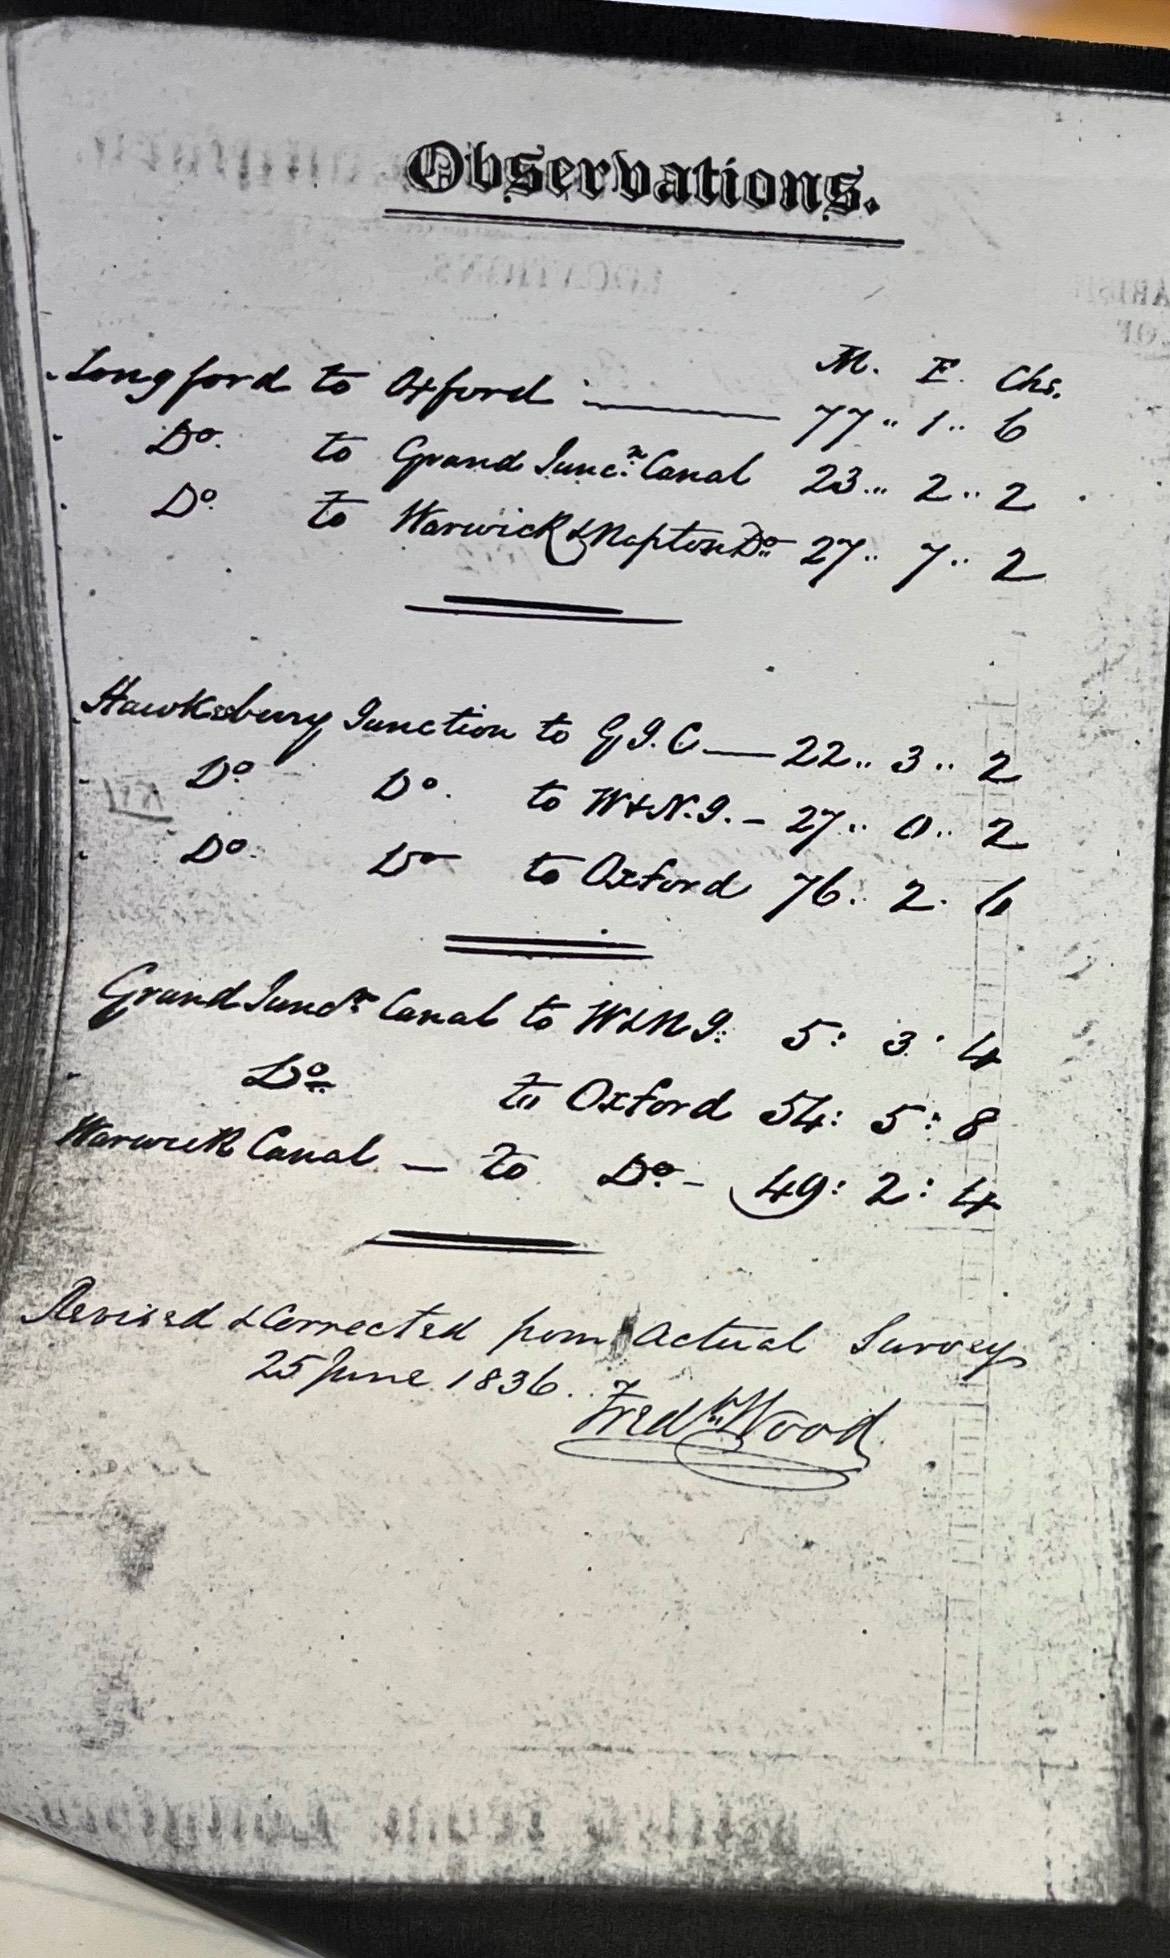 Observations.
M. F. Chs.
Longford to Oxford 77 .. 1 .. 6
Do. to Grand Juncn. Canal 23 .. 2 .. 2
Do. to Warwick & Napton Do 27 .. 7 .. 2
Hawkesbury Junction to G J. C 22 .. 3 .. 2
Do Do. to W & N. J. - 27 .. 0 .. 2
Do. Do to Oxford 76 . 2 . 6
Grand Juncn. Canal to W & N J. 5 : 3 : 4
Do to Oxford 54 : 5 : 8
Warwick Canal - to Do. - 49 : 2 : 4
Revised & Corrected from Actual Survey
25 June 1836. Fredk Wood